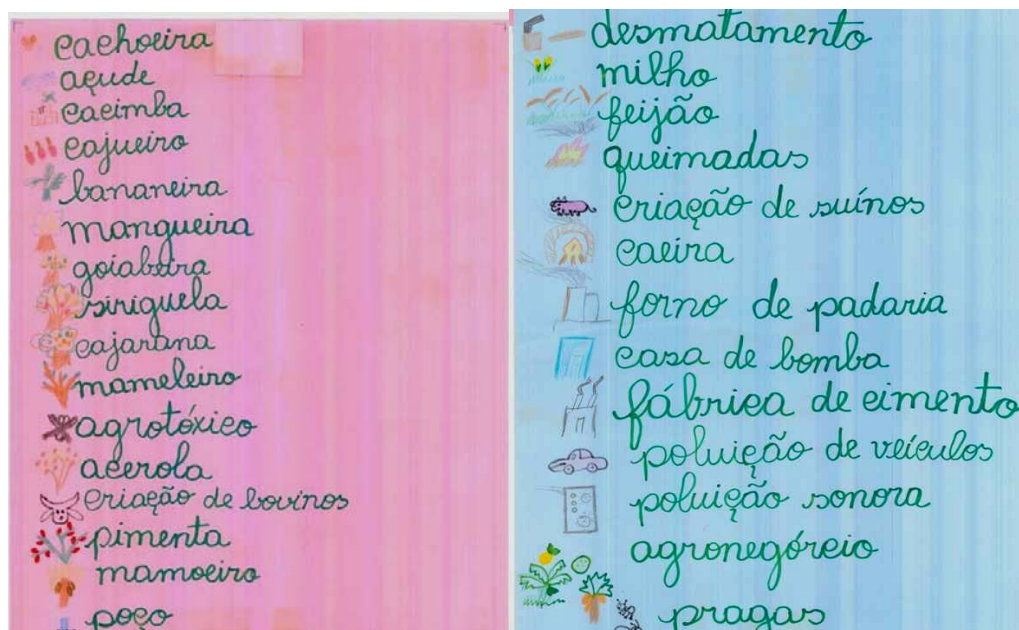 cachoeira
açude
cacimba
cajueiro
bananeira
mangueira
goiabeira
siriguela
cajarana
mameleiro
agrotóxico
acerola
criação de bovinos
pimenta
mamoeiro
poço
desmatamento
milho
feijão
queimadas
criação de suínos
caeira
forno de padaria
casa de bomba
fábrica de cimento
poluição de veículos
poluição sonora
agronegórcio
pragas